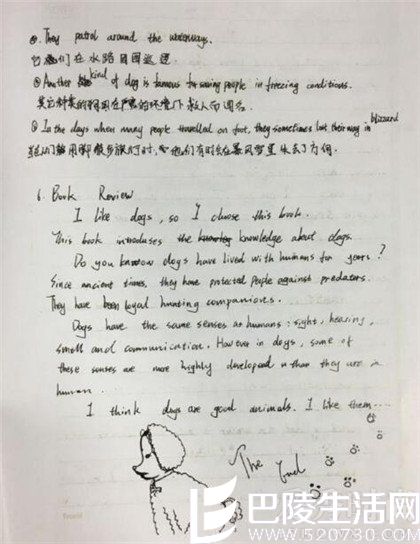 ⊕. They patrol around the waterways.
它们在水路周围巡逻.
⊕ Another kind of dog is famous for saving people in freezing conditions.
其它种类的狗因在严寒的环境下救人而闻名.
⊕ In the days when many people travelled on foot, they sometimes lost their way in blizzard
当人们用脚步旅行时,他们有时会在暴风雪里失去了方向.
6. Book Review
I like dogs, so I choose this book.
This book introduces the knowledge about dogs.
Do you know dogs have lived with humans for years?
Since ancient times, they have protected people against predators.
They have been loyal hunting companions.
Dogs have the same senses as humans: sight, hearing,
smell and communication. However in dogs, some of
these senses are more highly developed than they are in
human.
I think dogs are good animals. I like them....
The End
巴陵生活网
www.520730.com